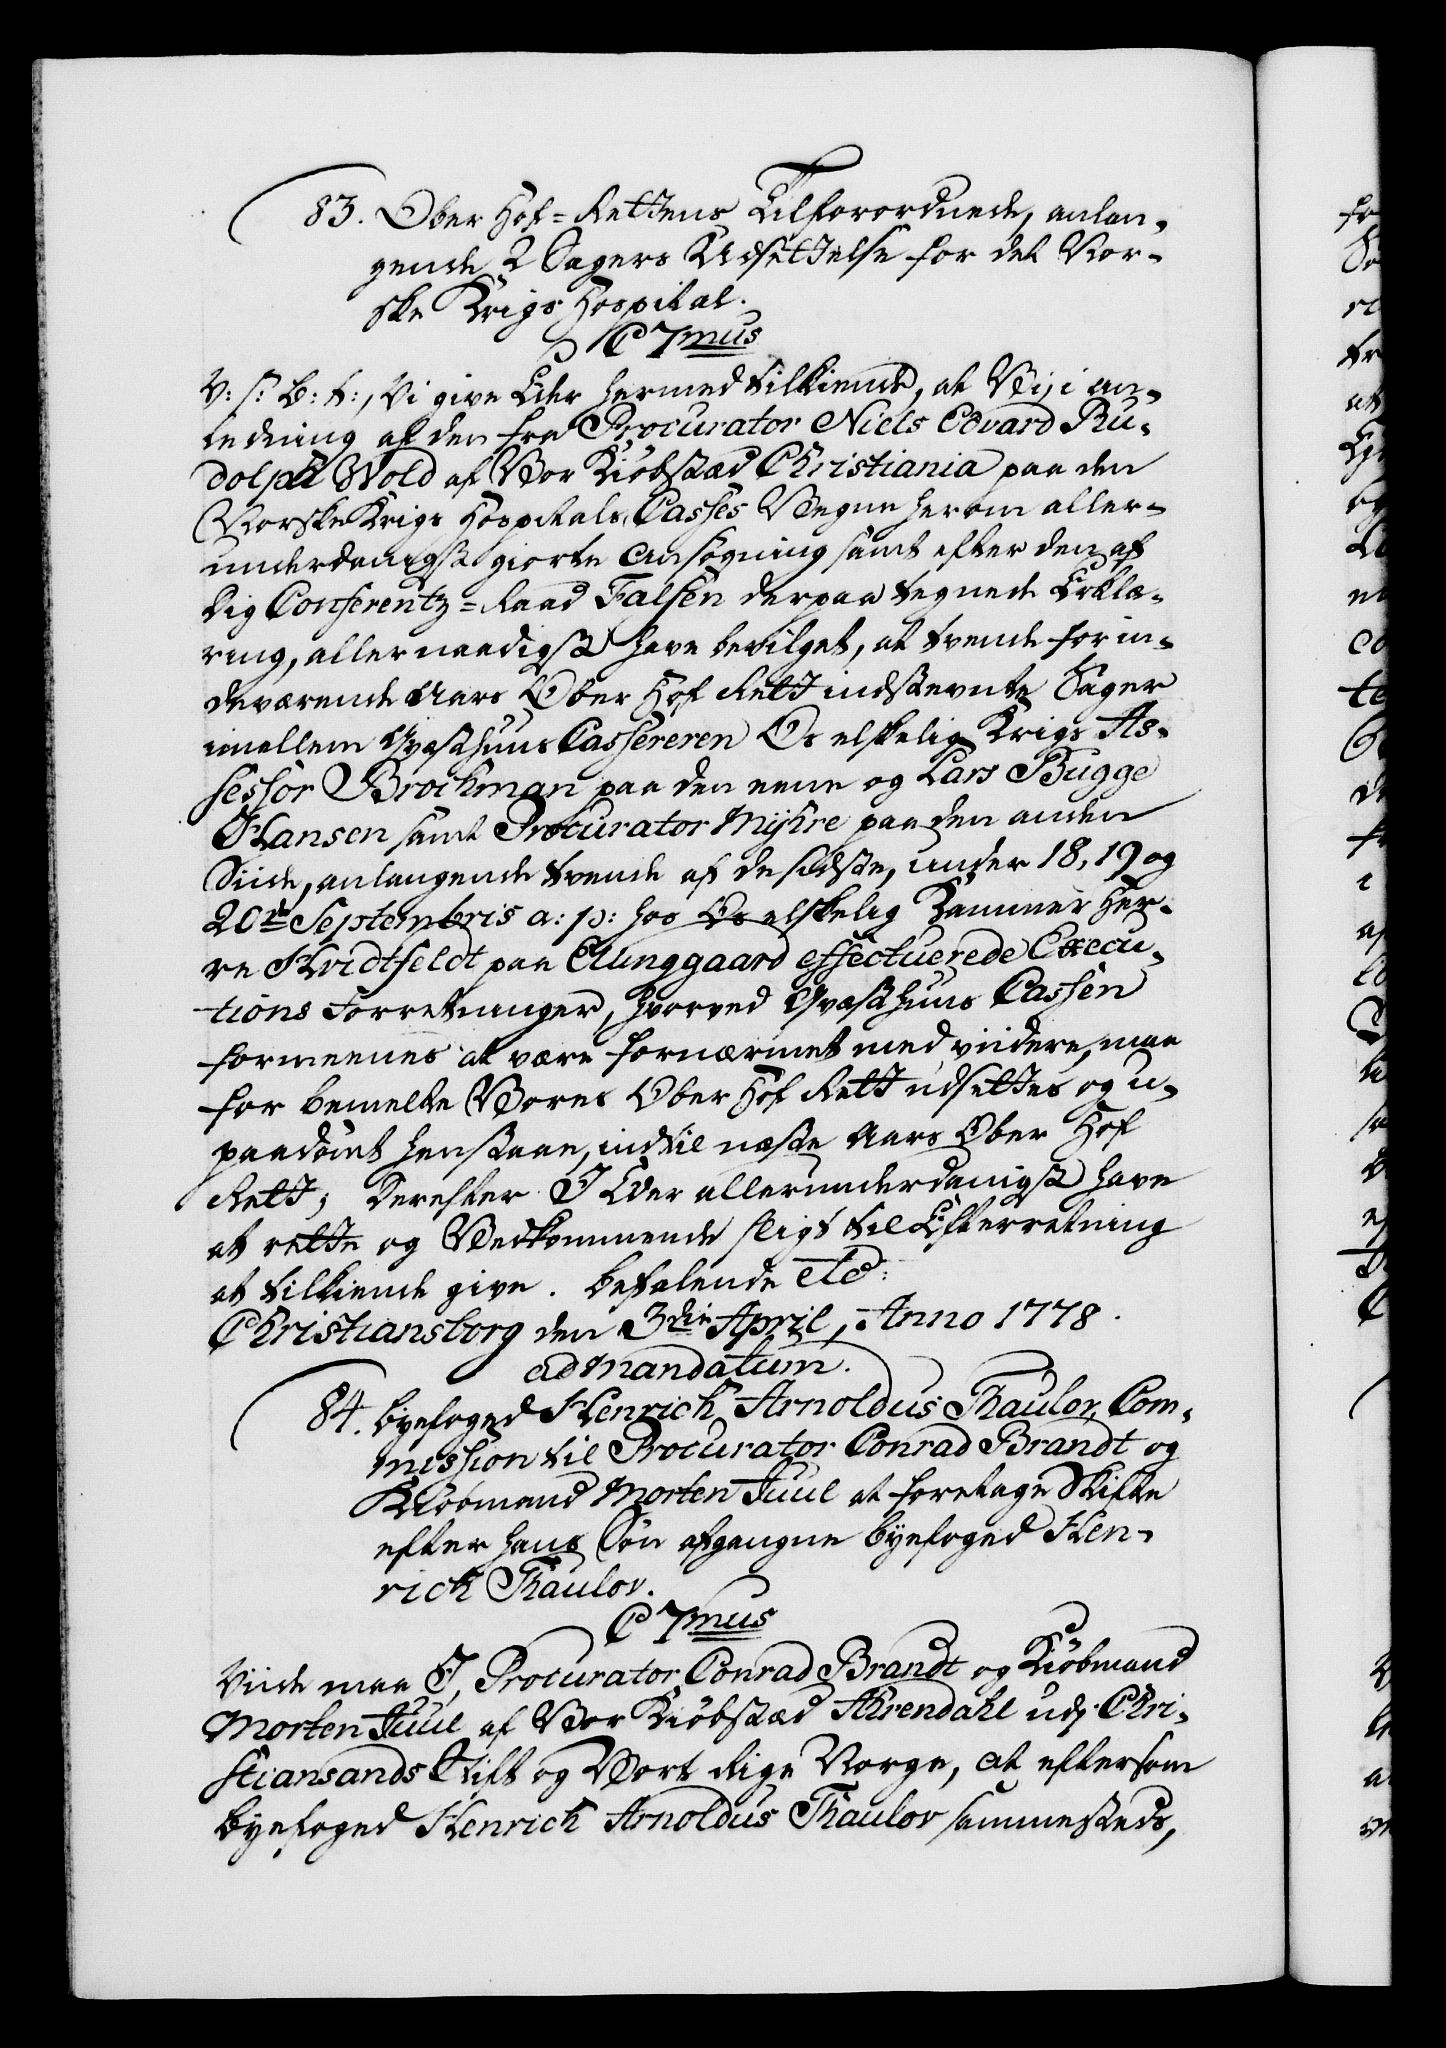 83. Ober Hof-Rettens Tilforordnede, anlan-
gende 2 Sagers Udsettelse for det Nor-
ske Krigs Hospital.
C 7mus
V: s: B: t:, Vi give Eder hermed tilkiende, at Vi, i an-
ledning af den fra Procurator Niels Edvard Ru-
dolph Wold af Vor Kiøbstæd Christiania paa den
Norske Krigs Hospitals Casses Vegne herom aller-
underdanigst giorte Ansøgning samt efter den af
dig Conferentz-Raad Falsen derpaa tegnede Erklæ-
ring, allernaadigst have bevilget, at tvende for in-
deværende Aars Ober Hof Rett indstevnte Sager
imellem Qvæsthuus Cassereren Os elskelig Krigs As-
sessor Brochman paa den eene og Lars Bugge
Hansen samt Procurator Myhre paa den anden
Siide, anlangende tvende af de sidste, under 18, 19 og
20de Septembris a: p: hos Os elskelig Kammer Her-
re Hvidtfeldt paa Elunggaard effectuerede Execu-
tions Forretninger, hvorved Qvæsthuus Cassen
formeenes at være fornærmet med viidere, maa
for bemelte Vores Ober Hof Rett udsettes og u-
paadømt henstaae, indtil næste Aars Ober Hof
Rett; Derefter I Eder allerunderdanigst have
at rette og Vedkommende sligt til Efterretning
at tilkiende give. Befalende etc:
Christiansborg den 3die April, Anno 1778.
ad Mandatum.
84. Byefoged Henrich Arnoldus Thaulov, Com-
mission til Procurator Conrad Brandt og
Kiøbmand Morten Juul at foretage Skifte
efter hans Søn afgangne Byefoged Hen-
rich Thaulov.
C 7mus
Viide maa I, Procurator Conrad Brandt og Kiøbmand
Morten Juul af Vor Kiøbstæd Ahrendahl udj Chri-
stiansands Stift og Vort Rige Norge, at eftersom
Byefoged Henrich Arnoldus Thaulov sammesteds,